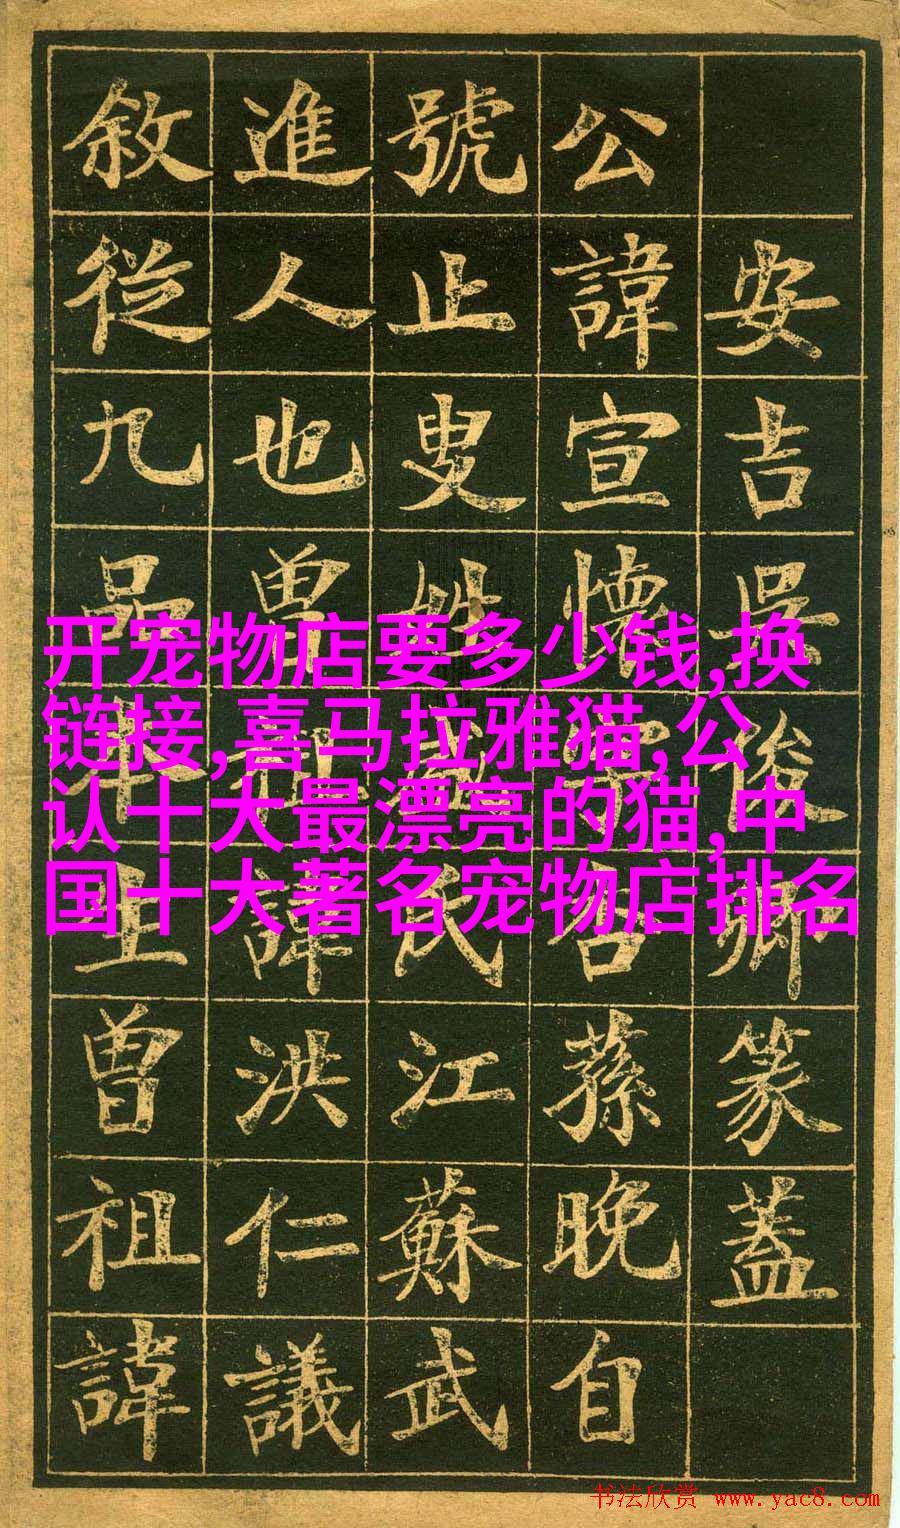 开宠物店要多少钱,换
链接,喜马拉雅猫,公
认十大最漂亮的猫,中
国十大著名宠物店排名
安吉吳俊卿篆蓋
公諱宣懷字蓀晚自
號止叟姓盛氏江蘇武
進人也曾祖諱洪仁議
敘從九品本生曾祖諱
书法欣赏 www.yac8.com